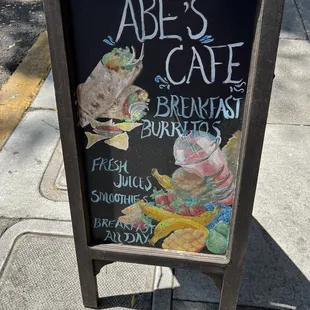 ABE'S
CAFE
BREAKFAST
BURRITOS
FRESH
JUICES
SMOOTHIES
BREAKFAST
ALL DAY